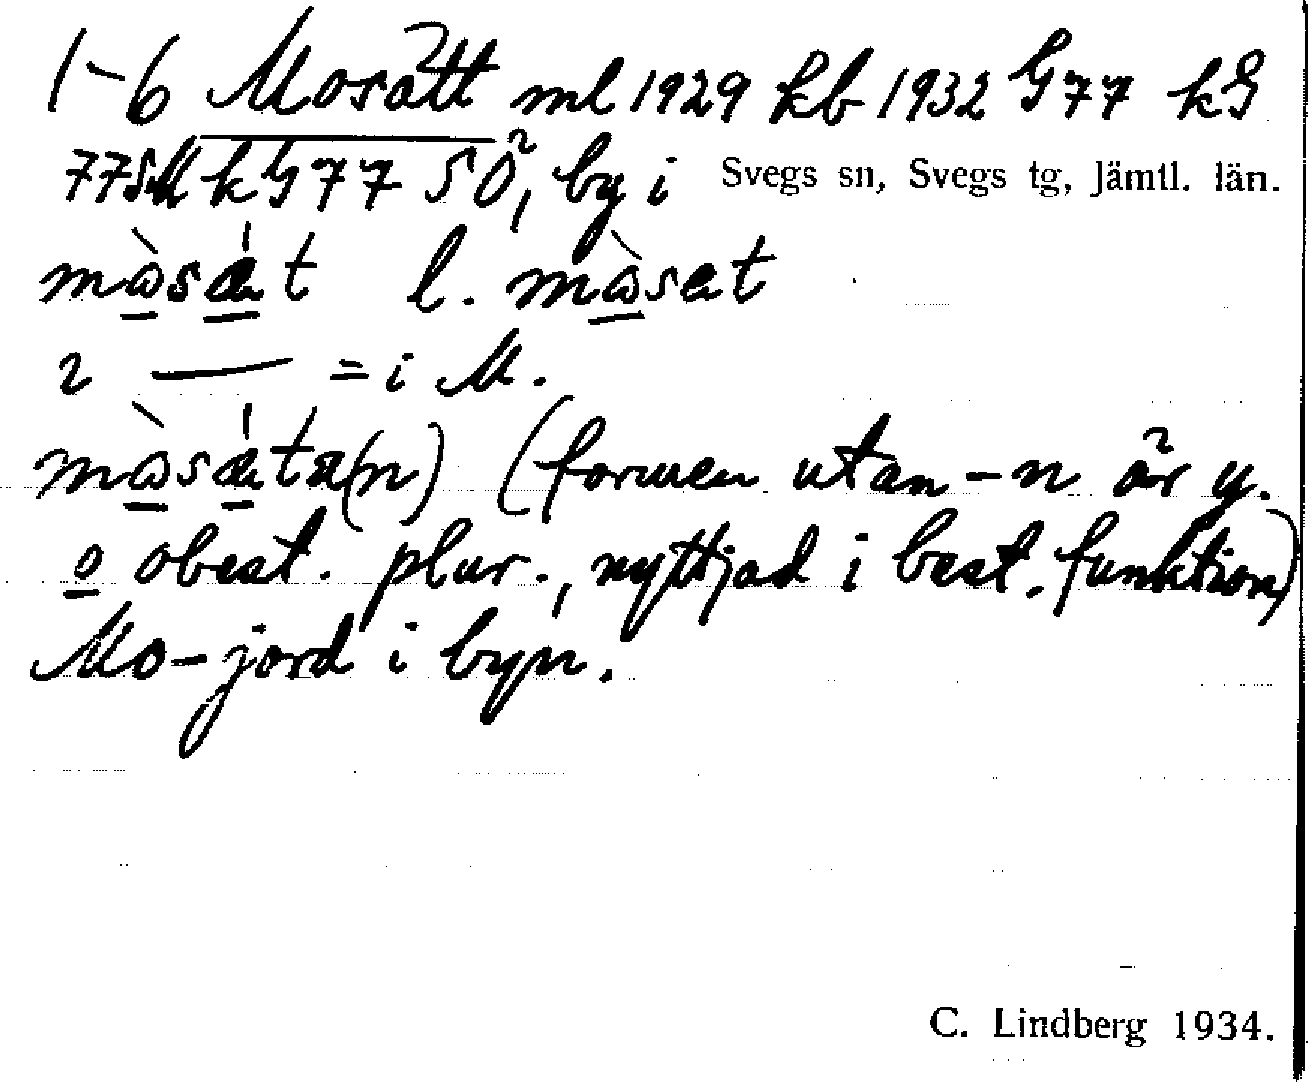 1-6 Mosätt ml 1929 kb 1932 G77 kG
77SM kG77 SÖ, by i Svegs sn, Svegs tg, Jämtl. län.
mɷ̀sæ̍t l. mɷ̀sæt
2 — = i M.
mɷ̀sæ̍ta(n) (formen utan -n är y.
o obest. plur., nyttjad i best. funktion)
Mo-jord i byn.
C. Lindberg 1934.